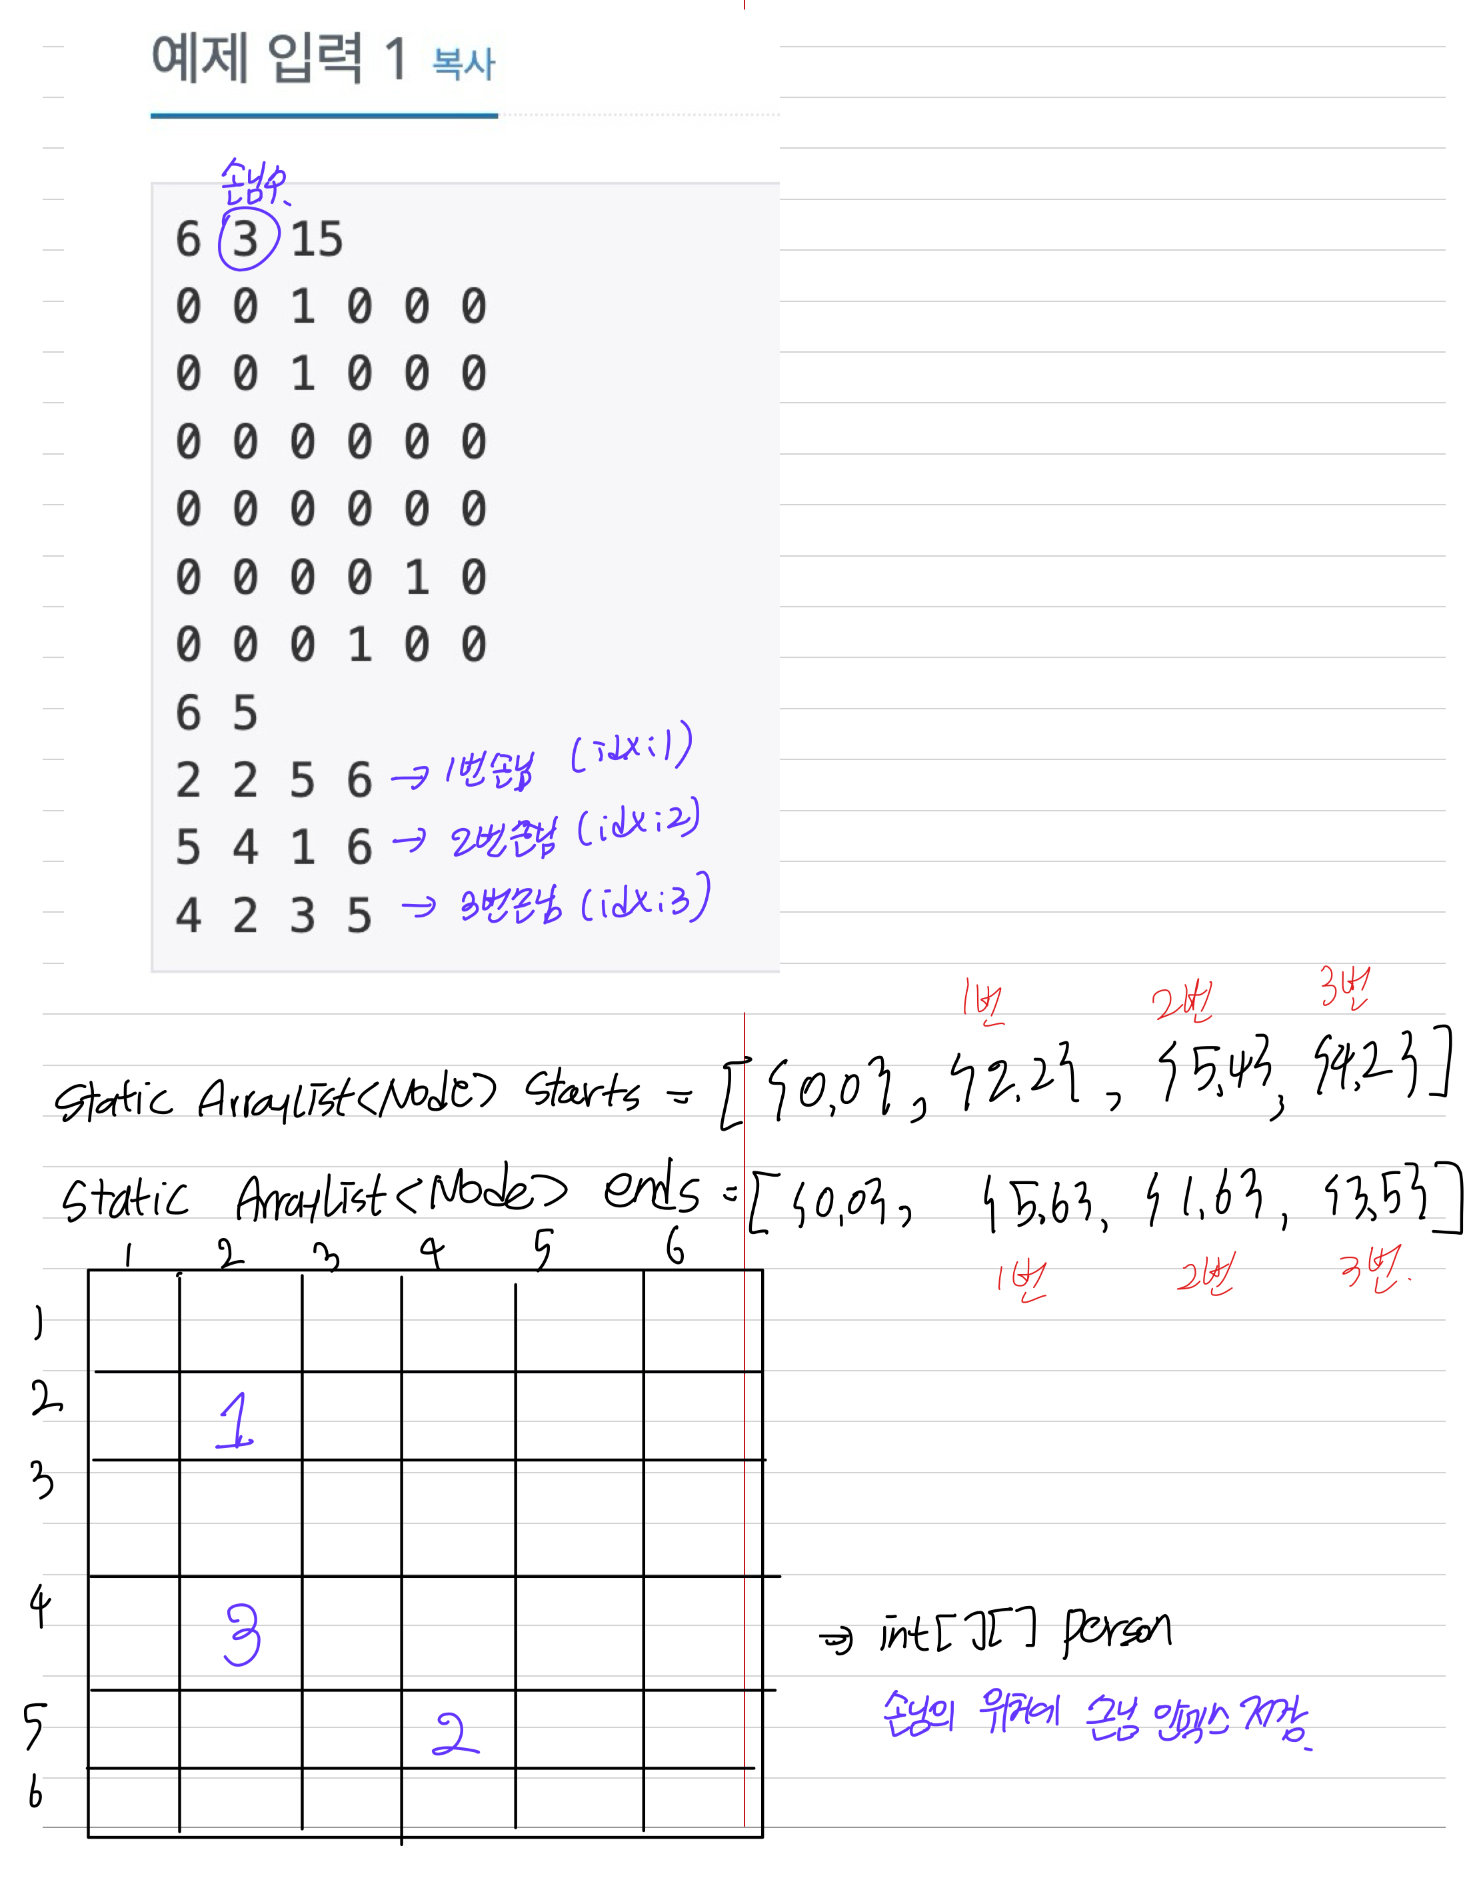 예제 입력 1 복사
손님수
6 3 15
0 0 1 0 0 0
0 0 1 0 0 0
0 0 0 0 0 0
0 0 0 0 0 0
0 0 0 0 1 0
0 0 0 1 0 0
6 5
2 2 5 6 → 1번손님 (idx:1)
5 4 1 6 → 2번손님 (idx:2)
4 2 3 5 → 3번손님 (idx:3)
1번 2번 3번
Static ArrayList<Node> Starts = [ {0,0}, {2,2}, {5,4}, {4,2} ]
Static ArrayList<Node> ends = [ {0,0}, {5,6}, {1,6}, {3,5} ]
1번 2번 3번.
1 2 3 4 5 6
1
2 1
3
4 3
→ int[][] person
손님의 위치에 손님 인덱스 저장.
5 2
6